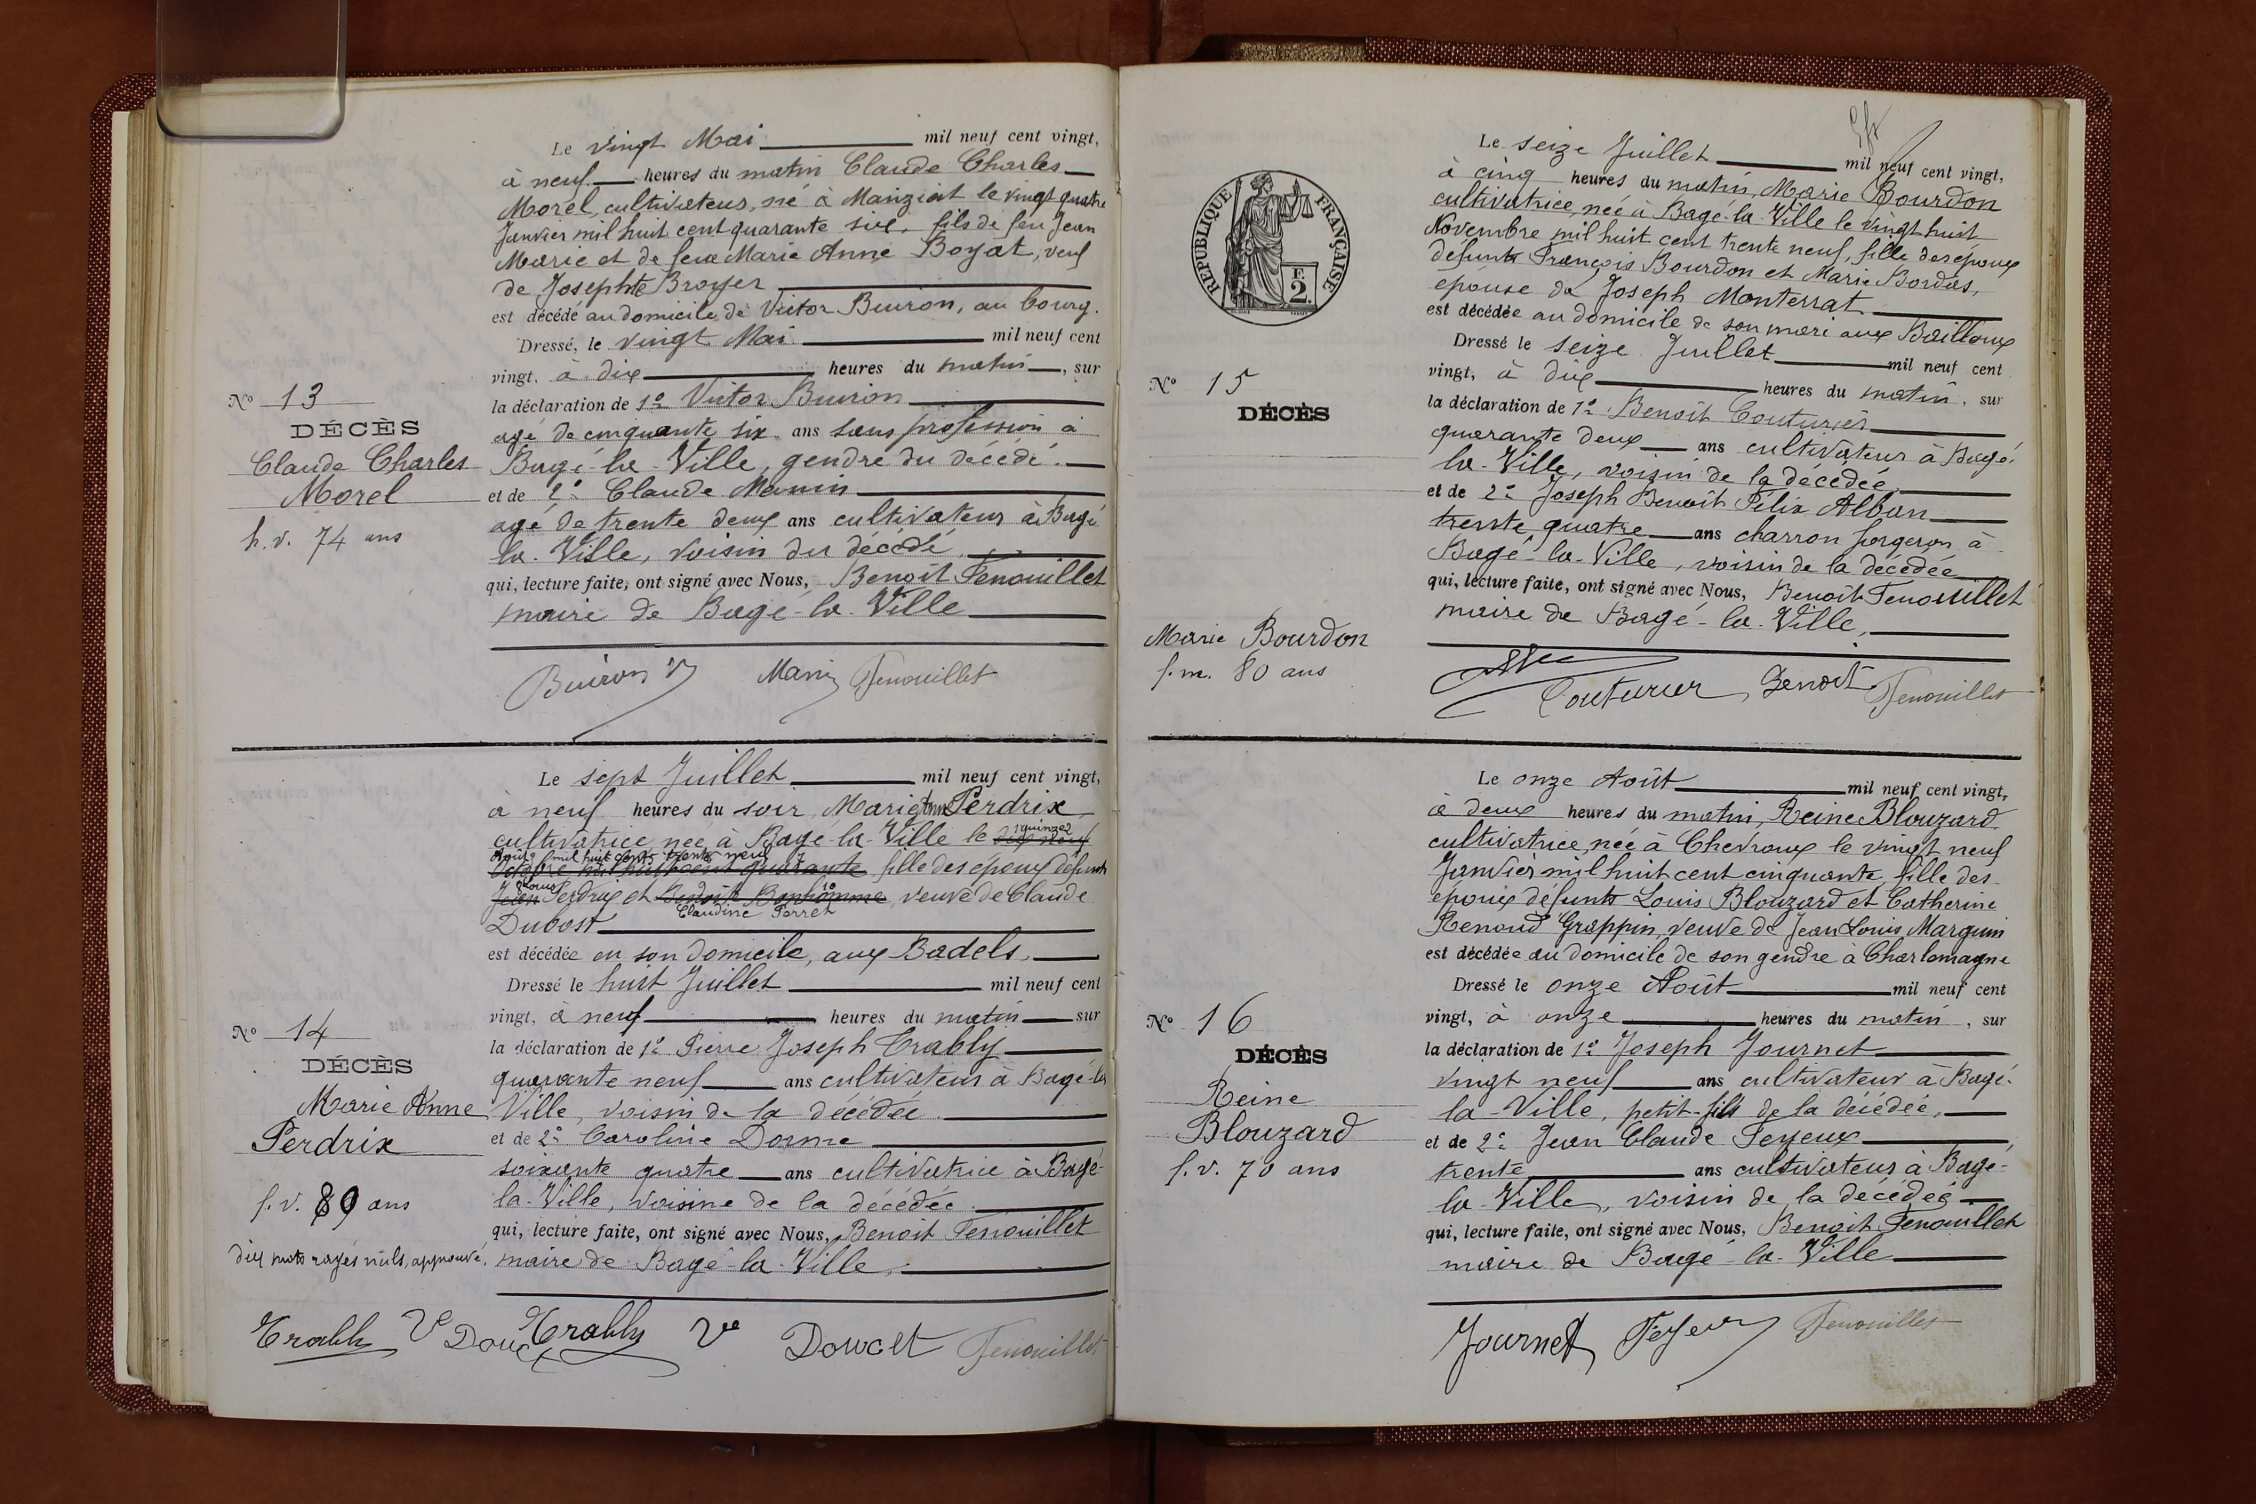 Le vingt Mai mil neuf cent vingt,
à neuf heures du matin Claude Charles
Morel, cultivateur, né à Manziat le vingt quatre
Janvier mil huit cent quarante six, fils de feu Jean
Marie et de feue Marie Anne Boyat, veuf
de Josephte Broyer
est décédé au domicile de Victor Buiron, au bourg.
Dressé, le vingt Mai mil neuf cent
vingt, à dix heures du matin, sur
la déclaration de 1º Victor Buiron
agé de cinquante six ans sans profession à
Bagé-la-Ville, gendre du décédé.
et de 2º Claude Manin
agé de trente deux ans cultivateur à Bagé
la-Ville, voisin du décédé,
qui, lecture faite, ont signé avec Nous, Benoît Fenouillet
maire de Bagé-la-Ville
Nº 13
DÉCÈS
Claude Charles
Morel
h.v. 74 ans
Buiron V Manin Fenouillet
Le sept Juillet mil neuf cent vingt,
à neuf heures du soir, Marie Anne Perdrix
cultivatrice née à Bagé-la-Ville le dix neuf quinze
Août mil huit cent trente neuf
Octobre mil huit cent quarante fille des époux défunts
Jean Louis Perdrix et Benoîte Bonhomme, veuve de Claude
Claudine Perret
Dubost
est décédée en son domicile, aux Badels.
Dressé le huit Juillet mil neuf cent
vingt, à neuf heures du matin sur
la déclaration de 1º Pierre Joseph Trably
quarante neuf ans cultivateur à Bagé-la
Ville, voisin de la décédée
et de 2º Caroline Dorme
soixante quatre ans cultivatrice à Bagé-
la-Ville, voisine de la décédée
qui, lecture faite, ont signé avec Nous, Benoît Fenouillet
maire de Bagé-la-Ville,
Nº 14
DÉCÈS
Marie Anne
Perdrix
f.v. 80 ans
dix mots rayés nuls, approuvé.
Trably Ve Doucet Trably Ve Doucet Fenouillet
RÉPUBLIQUE FRANÇAISE
F.
2.
Le seize Juillet mil neuf cent vingt,
à cinq heures du matin, Marie Bourdon
cultivatrice, née à Bagé-la-Ville le vingt huit
Novembre mil huit cent trente neuf, fille des époux
défunts François Bourdon et Marie Bordas,
épouse de Joseph Monterrat
est décédée au domicile de son mari aux Bailloux
Dressé le seize Juillet mil neuf cent
vingt, à dix heures du matin, sur
la déclaration de 1º Benoît Couturier
quarante deux ans cultivateur à Bagé-
la-Ville, voisin de la décédée,
et de 2º Joseph Benoît Félix Alban
trente quatre ans charron forgeron à
Bagé-la-Ville, voisin de la décédée
qui, lecture faite, ont signé avec Nous, Benoît Fenouillet
maire de Bagé-la-Ville,
Nº 15
DÉCÈS
Marie Bourdon
f.m. 80 ans
Couturier Benoît Fenouillet
Le onze Août mil neuf cent vingt,
à deux heures du matin, Reine Blouzard
cultivatrice, née à Chevroux le vingt neuf
Janvier mil huit cent cinquante, fille des
époux défunts Louis Blouzard et Catherine
Renoud Grappin, veuve de Jean Louis Marguin
est décédée au domicile de son gendre à Charlemagne
Dressé le onze Août mil neuf cent
vingt, à onze heures du matin, sur
la déclaration de 1º Joseph Journet
vingt neuf ans cultivateur à Bagé-
la-Ville, petit-fils de la décédée,
et de 2º Jean Claude Feyeux
trente ans cultivateur à Bagé-
la-Ville, voisin de la décédée
qui, lecture faite, ont signé avec Nous, Benoît Fenouillet
maire de Bagé-la-Ville
Nº 16
DÉCÈS
Reine
Blouzard
f.v. 70 ans
Journet Feyeux Fenouillet